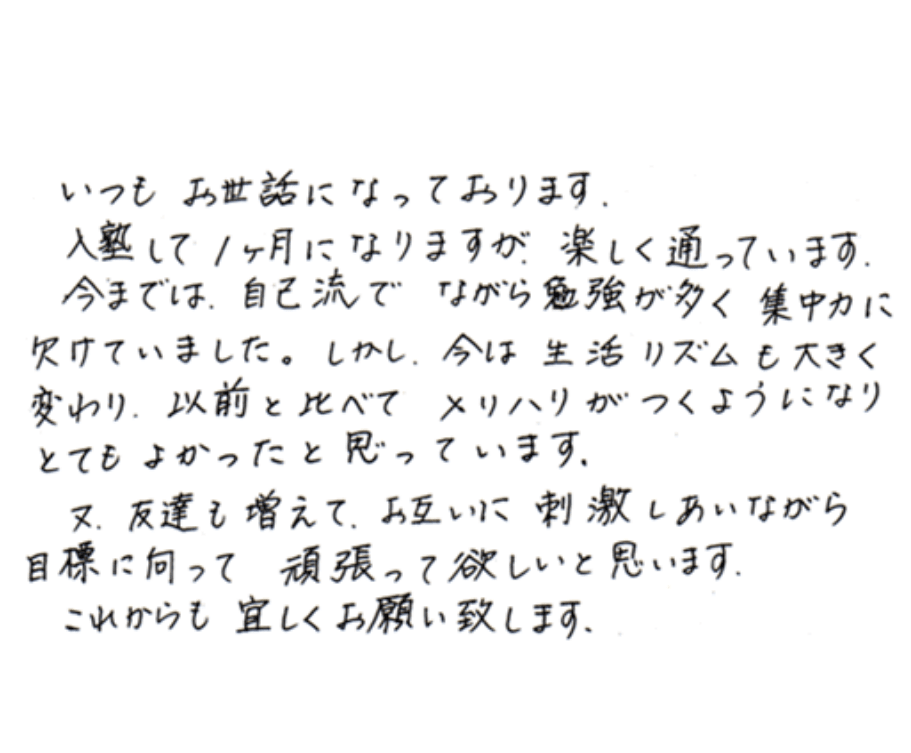 いつも お世話になっております.
入塾して1ヶ月になりますが. 楽しく通っています.
今までは. 自己流で ながら勉強が多く 集中力に
欠けていました。しかし. 今は 生活リズムも大きく
変わり. 以前と比べて メリハリがつくようになり
とてもよかったと思っています.
又. 友達も増えて. お互いに 刺激しあいながら
目標に向って 頑張って欲しいと思います.
これからも 宜しくお願い致します.